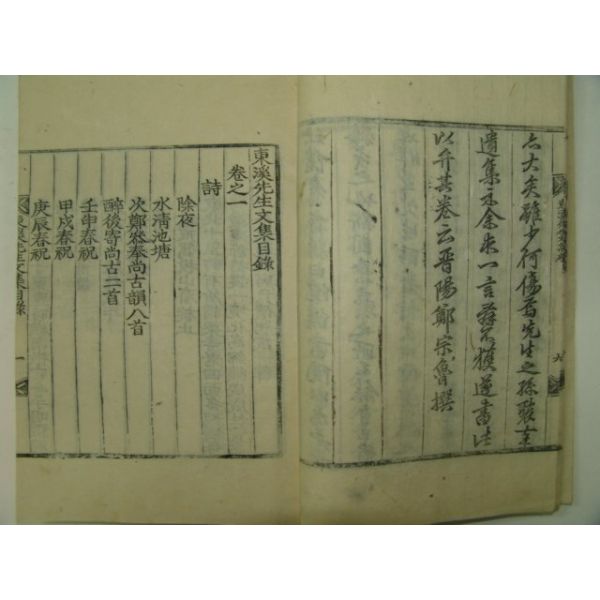 亦大矣雖少何傷焉先生之孫
遺集示余求一言辭不獲遂書此
以弁其卷云晋陽鄭宗魯撰
東溪先生文集目錄
卷之一
詩
除夜
水清池塘
次鄭奉尚古韻八首
醉後寄尚古二首
壬申春祝
甲戌春祝
庚辰春祝
東溪先生文集目錄
一